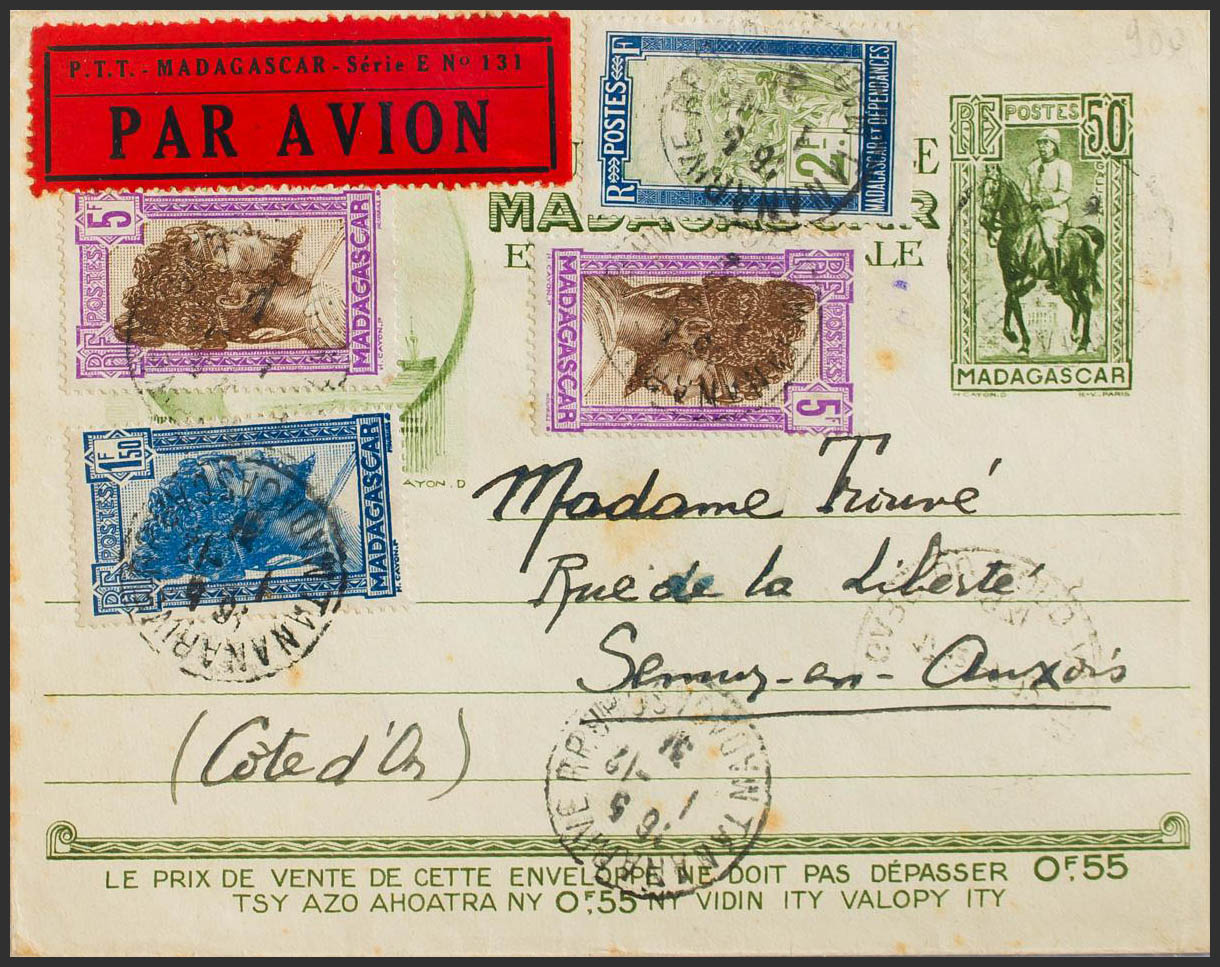 P.T.T. - MADAGASCAR - Série E Nº 131
PAR AVION
900
RF POSTES
2F
MADAGASCAR ET DÉPENDANCES
RF POSTES 50c
MADAGASCAR
H.CAYON.D H-V. PARIS
MADAGASCAR
E LE
5F
RF POSTES
MADAGASCAR
H.CAYON.D
MADAGASCAR
RF POSTES
5F
1F50
RF POSTES
MADAGASCAR
H.CAYON.D
CAYON.D
TANANARIVE R.P.
MADAGASCAR
Madame Trouvé
Rue de la Liberté
Semur-en-Auxois
(Côte d'Or)
TANANARIVE R.P.
MADAGASCAR
LE PRIX DE VENTE DE CETTE ENVELOPPE NE DOIT PAS DÉPASSER 0F,55
TSY AZO AHOATRA NY 0F,55 NY VIDIN ITY VALOPY ITY